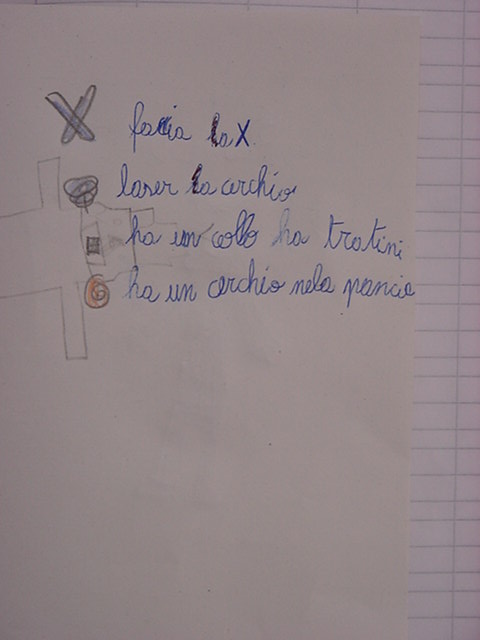 facia la X
laser la cerchio
ha un collo ha tratini
ha un cerchio nela pancia